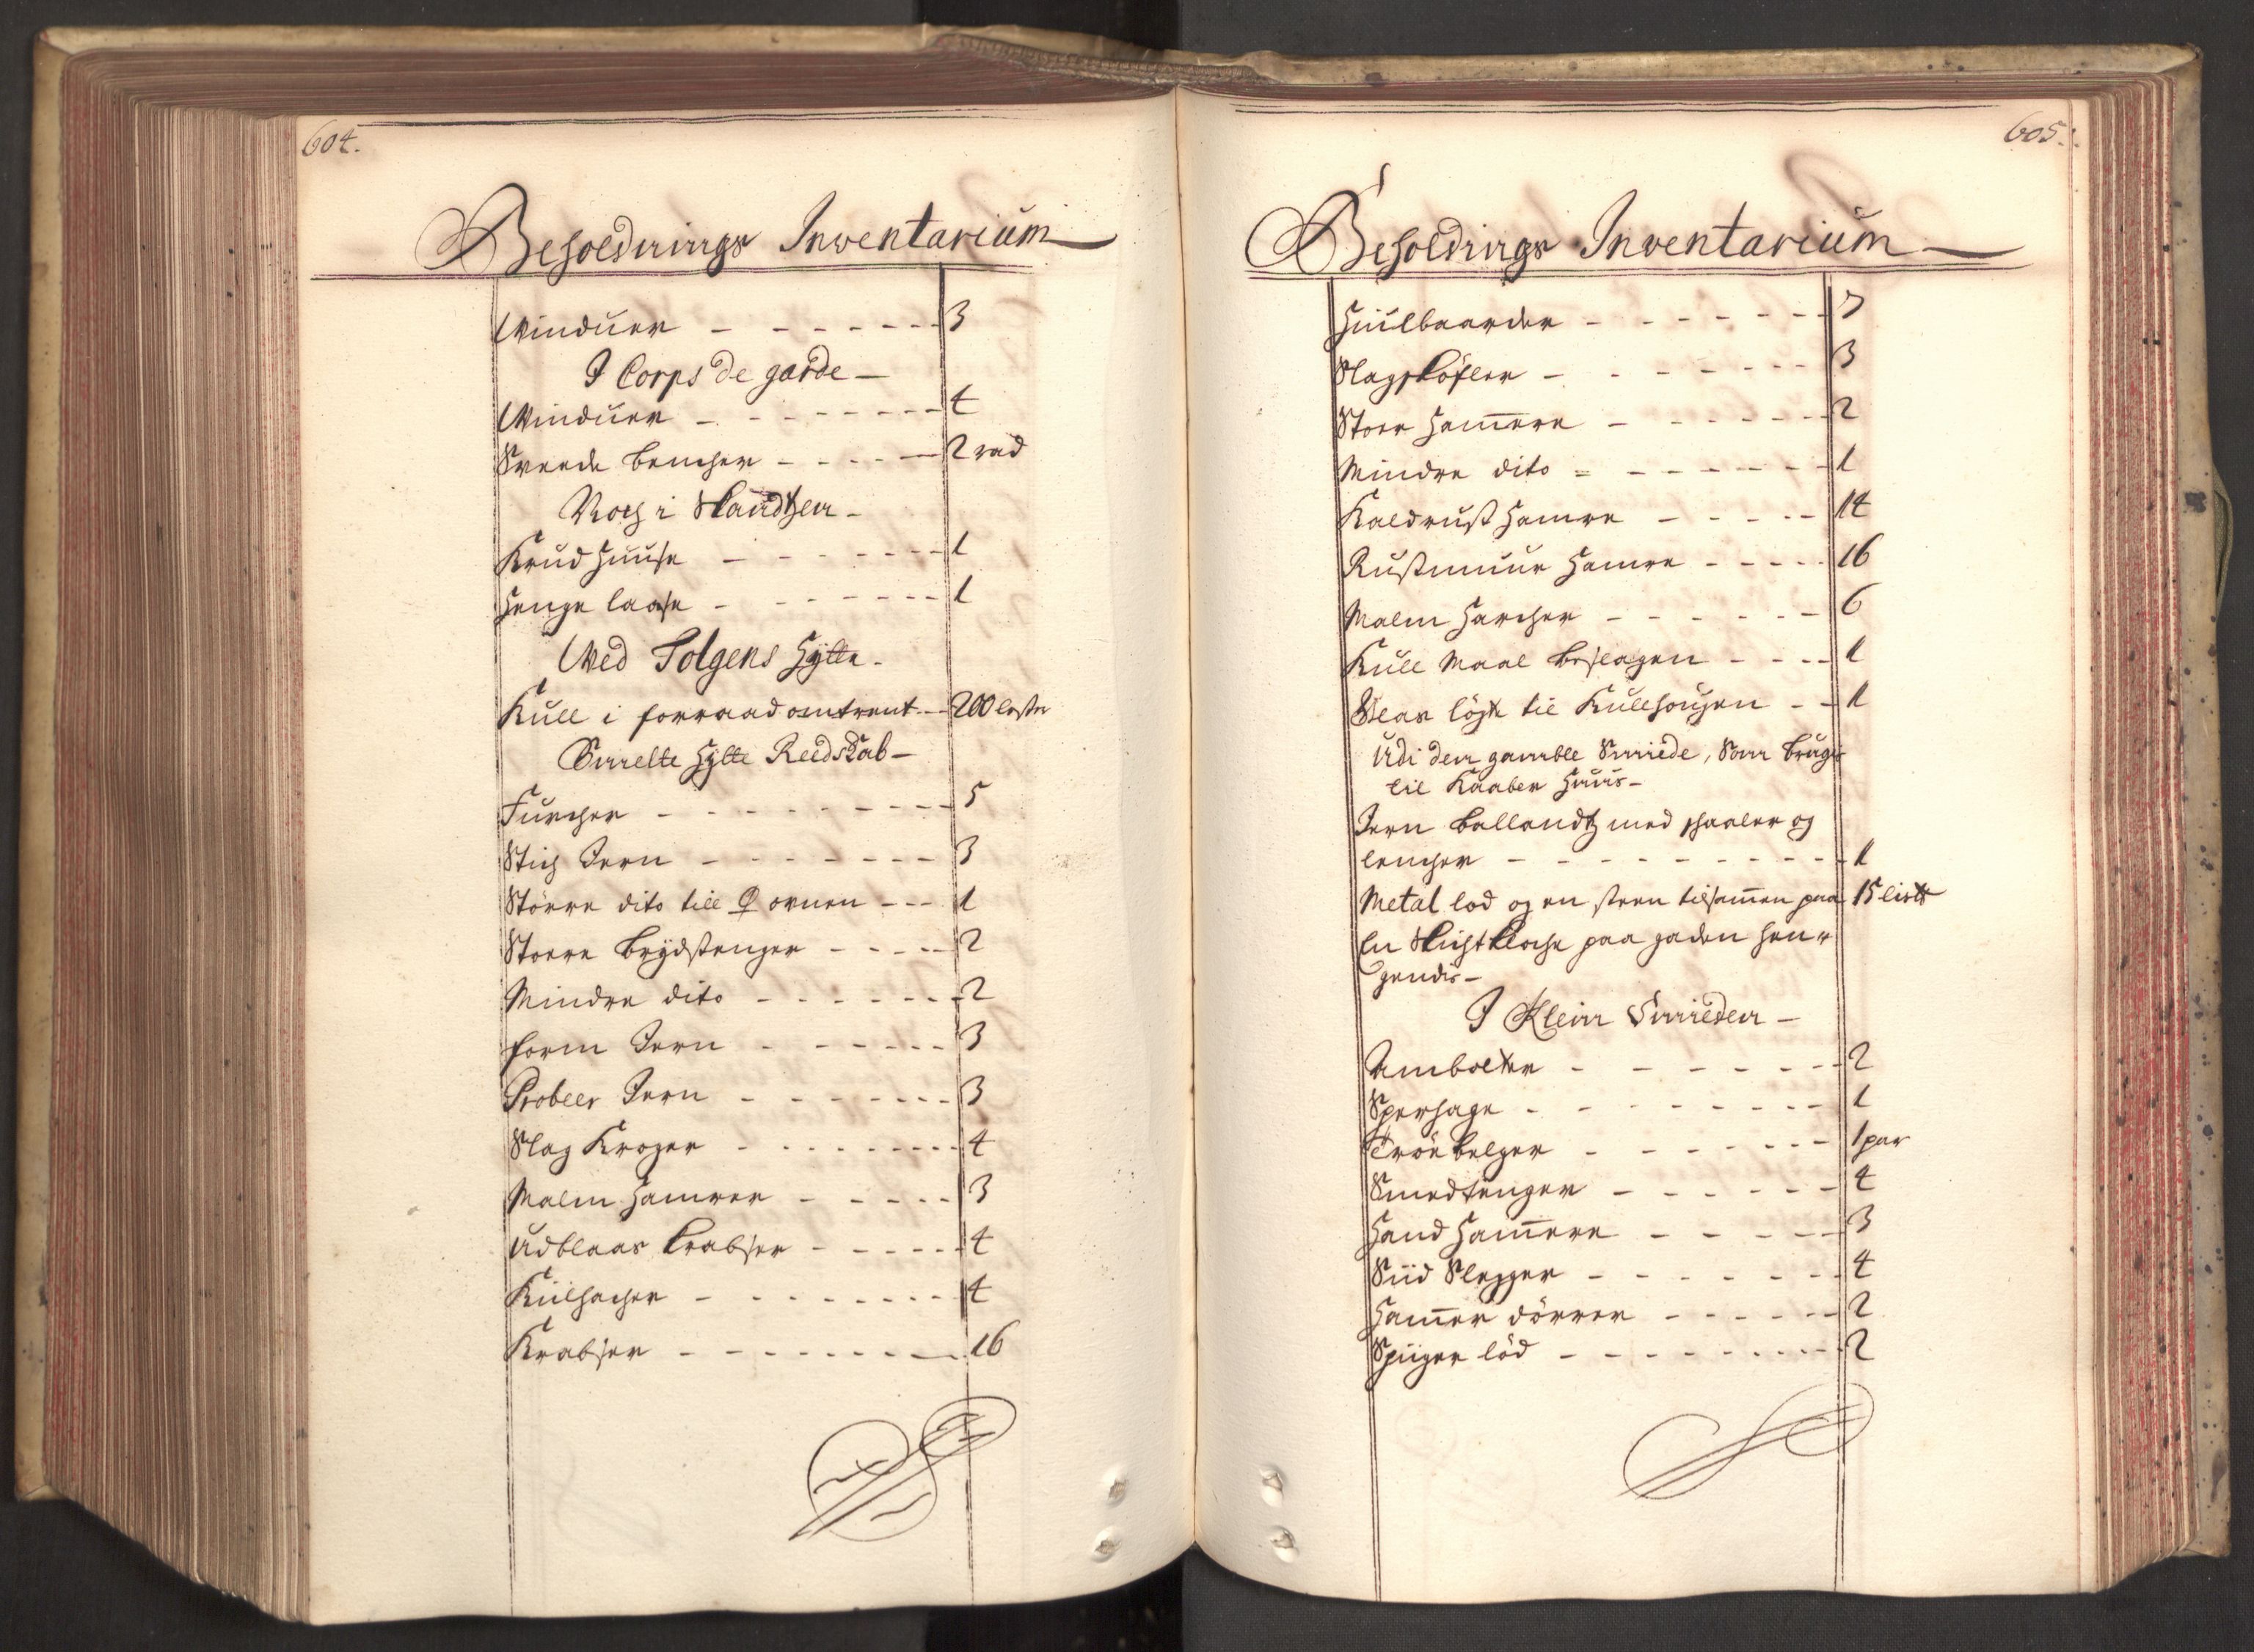 604.
Beholdnings Inventarium
Vinduer - - - - - - - 3
I Corps de garde -
Vinduer - - - - - - - 4
Svende bencher - - - - 2 rad
Noch i Skandtzen -
Krud Huuse - - - - - - 1
Henge laase - - - - - - 1
Ved Tolgens Hÿtte -
Kull i forraad omtrent - - 200 lester
Smelte Hÿtte Reedskab -
Furcher - - - - - - - 5
Stich Jern - - - - - - 3
Större dito till ♀ ovnen - - - 1
Stoere brÿdstenger - - - - 2
Mindre dito - - - - - - 2
form Jern - - - - - - 3
Probeer Jern - - - - - - 3
Slag Kroger - - - - - - 4
Malm Hamrer - - - - - 3
Udblaas krabser - - - - - 4
Kulhacher - - - - - - 4
Krabser - - - - - - - 16
605.
Beholdnings Inventarium
Hiulbaarder - - - - - - 7
Slagskofler - - - - - - 3
Stoer Ham̅ere - - - - - 2
Mindre dito - - - - - - 1
Kaldrust Hamre - - - - - 14
Rustmuur Hamre - - - - - 16
Malm Harcher - - - - - 6
Kull Maal beslagen - - - - 1
Glas löcht til Kullhougen - - 1
Udi den gamble Smiede, Som brugis
til Kaaber Huus -
Jern ballandtz med skaaler og
lencher - - - - - - - - 1
Metal lod og en steen tilsam̅en paa 15 lis℔
En Skicht kloche paa gaden hen-
gendis -
I Klein Smieden -
Ambolter - - - - - - 2
Sperhage - - - - - - - 1
Tröe belger - - - - - - 1 par
Smedtenger - - - - - - 4
Hand Ham̅ere - - - - - 3
Siid Slegger - - - - - - 4
Ham̅er dörrer - - - - - 2
Spiiger löd - - - - - - - 2